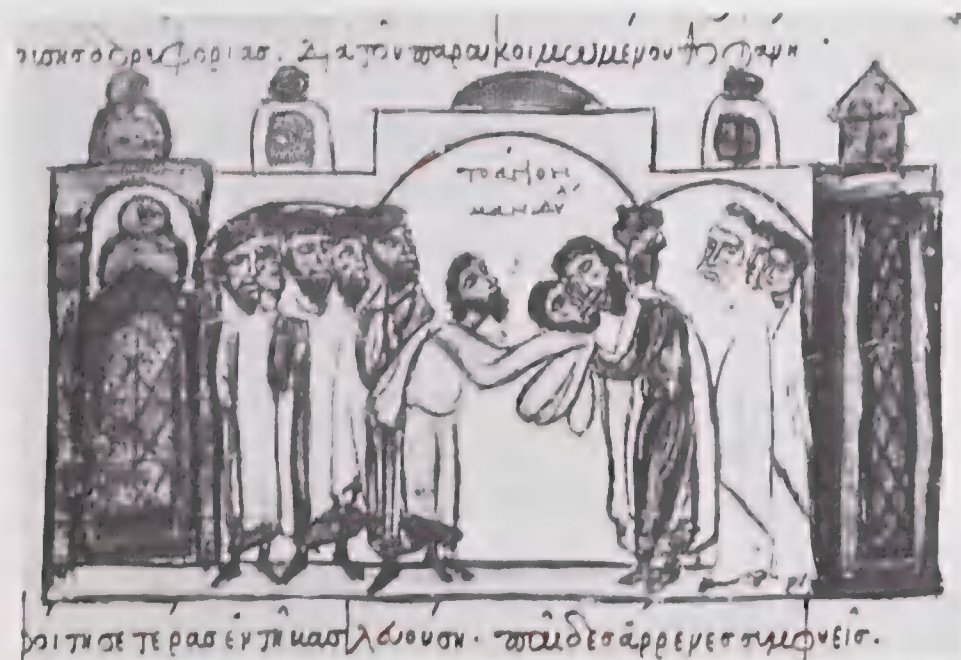 δορυφορίας. διὰ τοῦ παρακοιμωμένου
τὸ ἅγιον
μανδύλ
φοίτησε τέρας ἐν τῇ βασιλευούσῃ. παῖδες ἄρρενες συμφυεῖς.